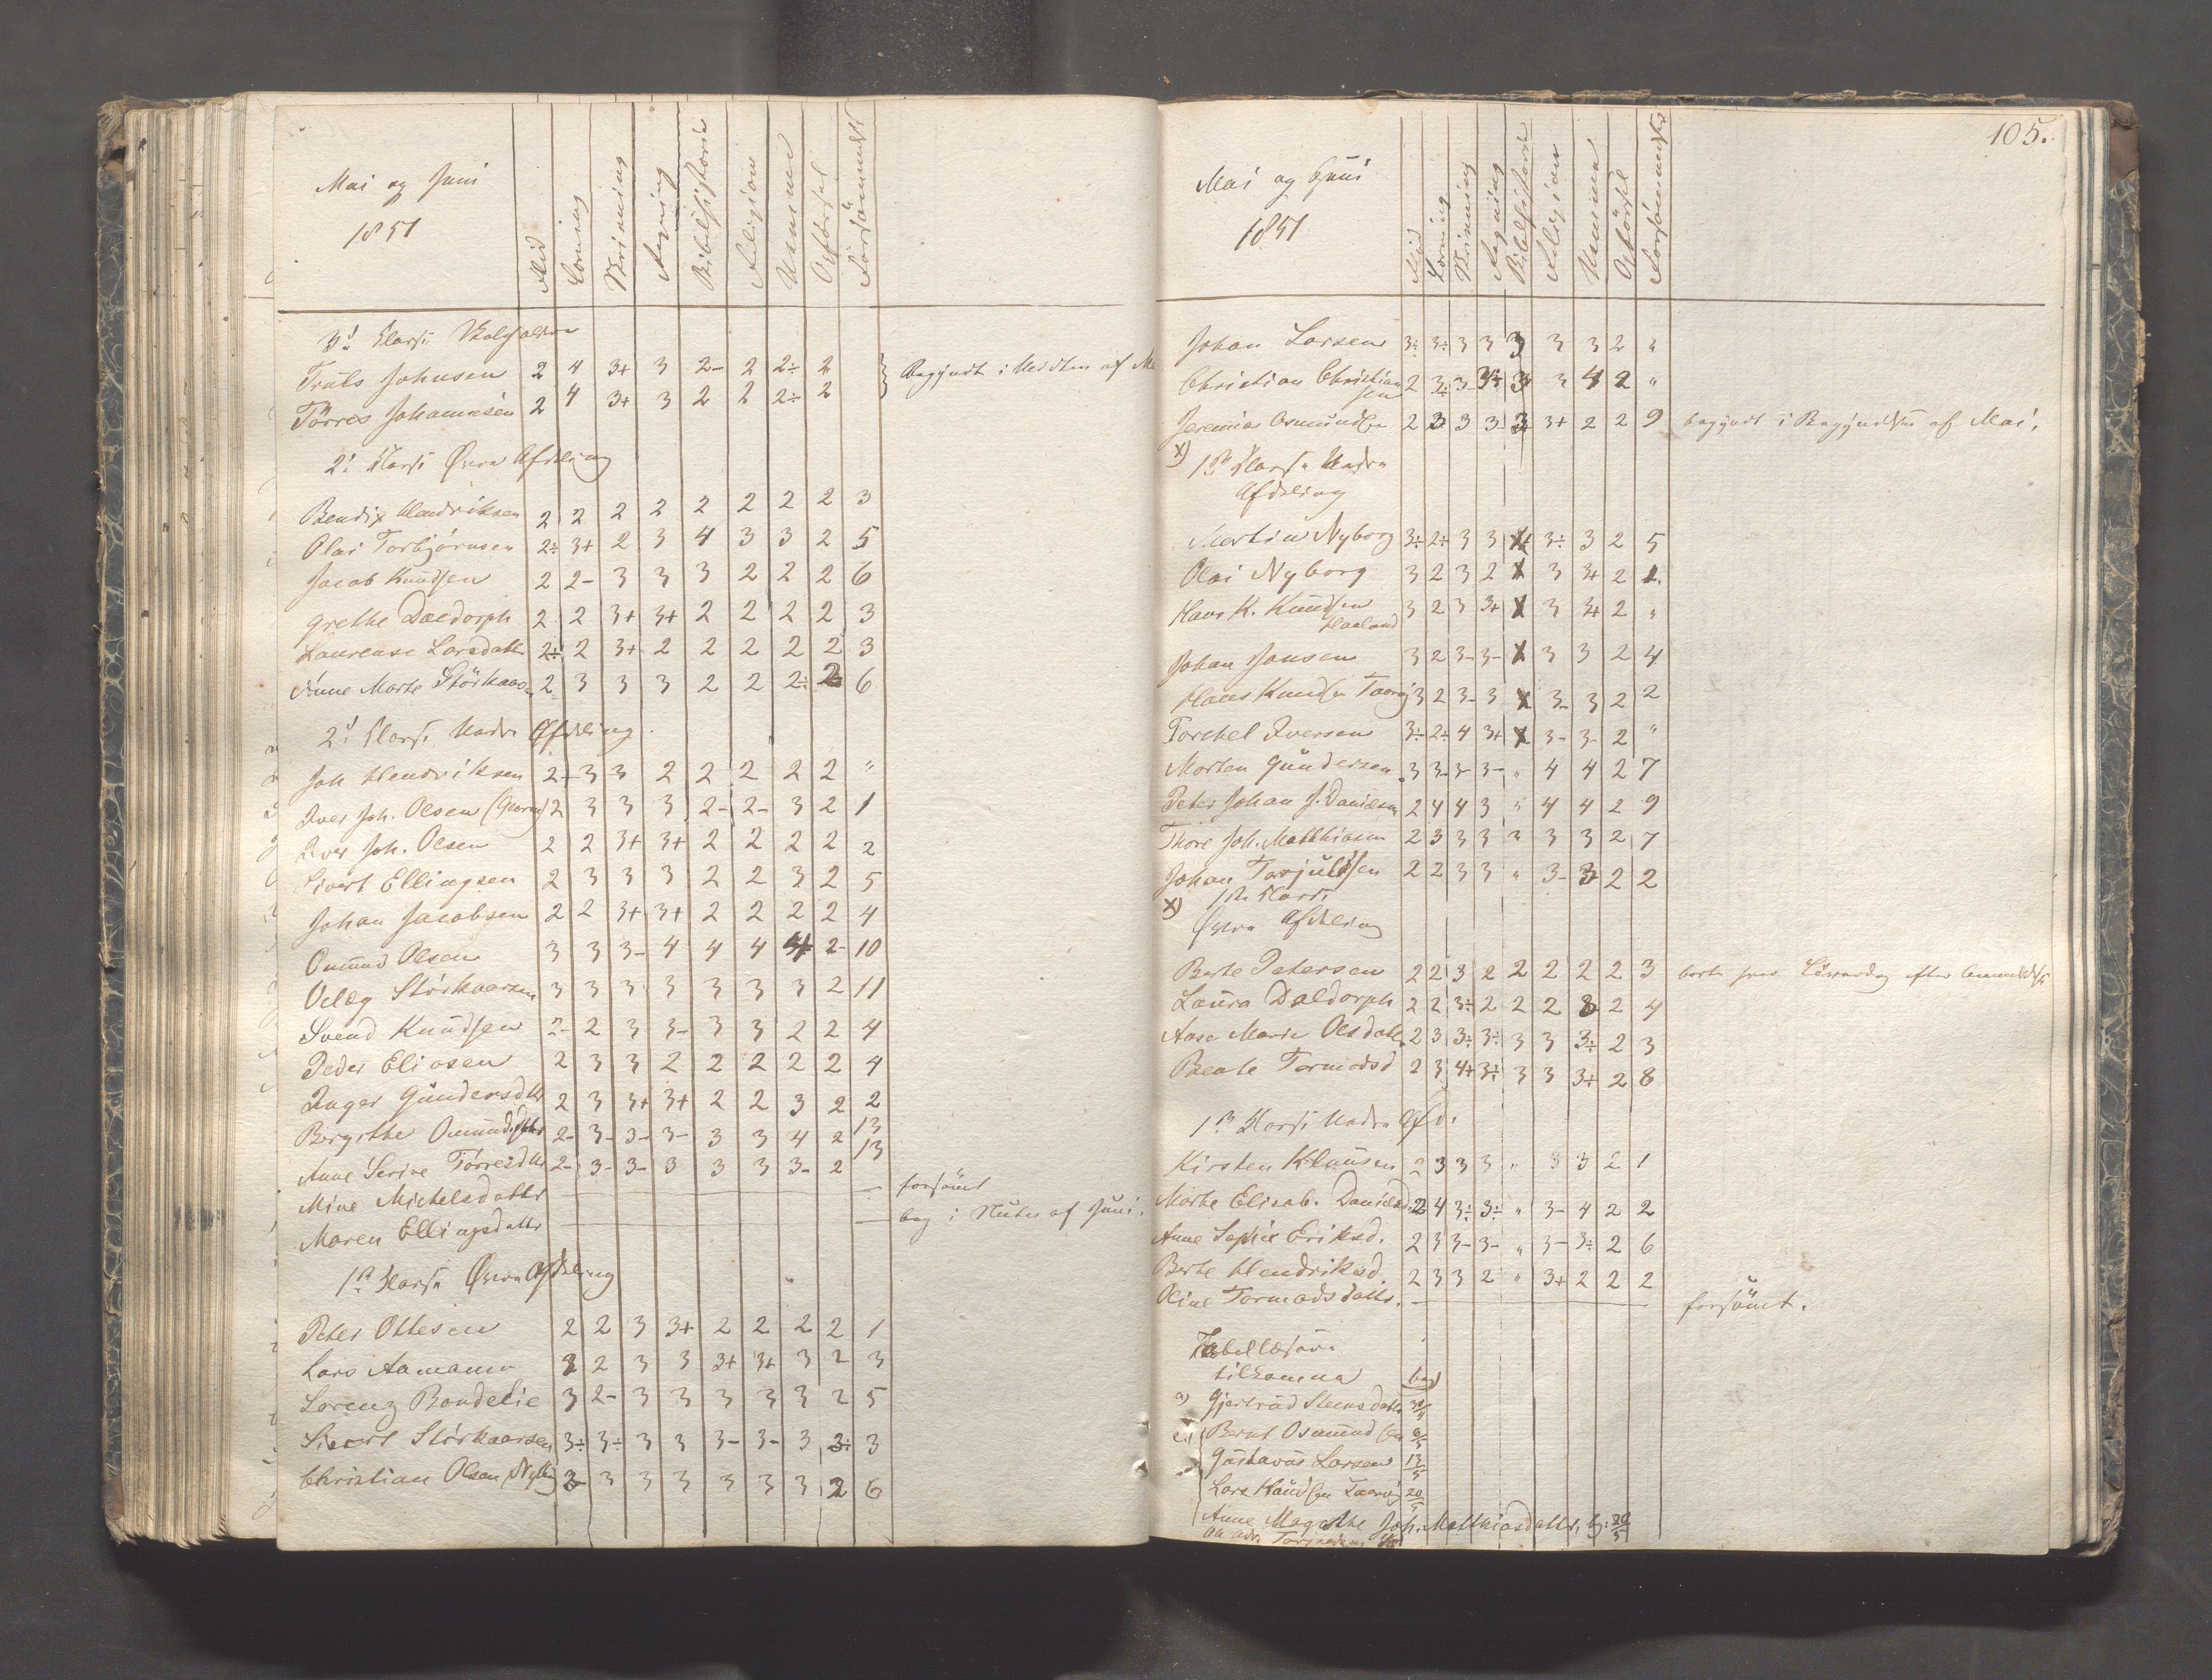 Mai og Juni
1851
Flid Læsning Skrivning Regning Bibelhistorie Religion Udenad Opførsel Forsømmelse
3d Klasse
Truls Johnsen 2 4 3+ 3 2- 2 2÷ 2 } Begyndt i Midten af
Törres Johannesen 2 4 3+ 3 2 2 2÷ 2
2d Klasse Øvre Afdeling
Bendix Hendriksen 2 2 2 2 2 2 2 2 3
Olai Torbjörnsen 2÷ 3+ 2 3 4 3 3 2 5
Jacob Knudsen 2 2- 3 3 3 2 2 2 6
Grethe Daldorph 2 2 3+ 3+ 2 2 2 2 3
Laurense Larsdatter 2÷ 2 3+ 2 2 2 2 2 3
Anne Marte 2 3 3 3 2 2 2÷ 2 6
2d Klasse Nedre Afdeling
Joh Hendriksen 2- 3 3 2 2 2 2 2 "
Iver Joh. Olsen 2 3 3 3 2- 2- 3 2 1
Iver Joh. Olsen 2 2 3+ 3+ 2 2 2 2 2
Sivert Ellingsen 2 3 3 3 2 2 3 2 5
Johan Jacobsen 2 2 3+ 3+ 2 2 2 2 4
Omund Olsen 3 3 3- 4 4 4 4+ 2- 10
Störkaarsen 3 3 3 3 3 3 3 2 11
Svend Knudsen 2- 2 3 3- 3 3 2 2 4
Peder Eliasen 2 3 3 2 2 2 2 2 4
Inger Gundersdtr 2 3 3+ 3+ 2 2 3 2 2
Bergithe Omundsdtr 2- 3- 3- 3- 3 3 4 2 13
Anne Serine Törresdtr 2- 3- 3- 3 3 3 3- 2 13
Mine Michelsdattr — forsömt
Maren Ellingsdattr — beg i Slutn af Juni.
1ste Klasse Øvre Afdeling
Peter Ottesen 2 2 3 3+ 2 2 2 2 1
Lars Aamann 2 2 3 3 3+ 3+ 3 2 3
Lorenz Bondelie 3 2- 3 3 3 3 3 2 5
Sivert Störkaarsen 3÷ 3÷ 3 3 3- 3- 3 3÷ 3
Christian Olsen 3- 3 3 3 3 3 3 2 6
105.
Mai og Juni
1851
Flid Læsning Skrivning Regning Bibelhistorie Religion Udenad Opförsel Forsömmelse
Johan Larsen 3÷ 3÷ 3 3 3 3 3 2 "
Christian Christiansen 2 3÷ 3- 3+ 3 3 4 2 "
Jeremias Osmundsen 2 3 3 3 3 3+ 2 2 9 begyndt i Begyndelsen af Mai.
X) 1ste Klasse Nedre
Afdeling
Martin Nyborg 3÷ 2÷ 3 3 X 3÷ 3 2 5
Olai Nyborg 3 2 3 2 X 3 3+ 2 1.
Hans K. Knudsen Haaland 3 2 3 3+ X 3 3+ 2 "
Johan Jansen 3 2 3- 3- X 3 3 2 4
Hans Knudsen 3 2 3- 3 X 3- 3 2 2
Torckel Iversen 3÷ 2÷ 4 3+ X 3- 3- 2 "
Morten Gundersen 3 3- 3- 3- " 4 4 2 7
Peter Johan J. Danielsen 2 4 4 3 " 4 4 2 9
Thore Joh. Matthiasen 2 3 3 3 " 3 3 2 7
Johan Tarjulsen 2 2 3 3 " 3- 3 2 2
X) 1ste Klasse
Øvre Afdeling
Berte Petersen 2 2 3 2 2 2 2 2 3 borte hver Löverdag efter Anmeldelse
Laura Daldorph 2 2 3÷ 2 2 2 3 2 4
Aase Marie Olsdatter 2 3 3÷ 3÷ 3 3 3÷ 2 3
Beate Tormodsd 2 3 4+ 3÷ 3 3 3÷ 2 8
1ste Klasse Nedre Afd.
Kirsten Klausen 2 3 3 3 " 3 3 2 1
Marthe Elisab. Danielsd. 2 4 3÷ 3÷ " 3- 4 2 2
Anne Sophie Eriksd. 2 3 3- 3- " 3- 3÷ 2 6
Berte Hendriksd. 2 3 3 2 " 3+ 2 2 2
Oline Tormodsdattr. — forsömt.
Tabellæsere
tilkomne beg
a) Gjertrud Steensdatter 30/4
Bernt Osmundsen 6/5
Gustavus Larsen 13/5
Lars Knudsen 20/5
Anne Magrethe Joh. Matthiasdattr. bg: 20/5